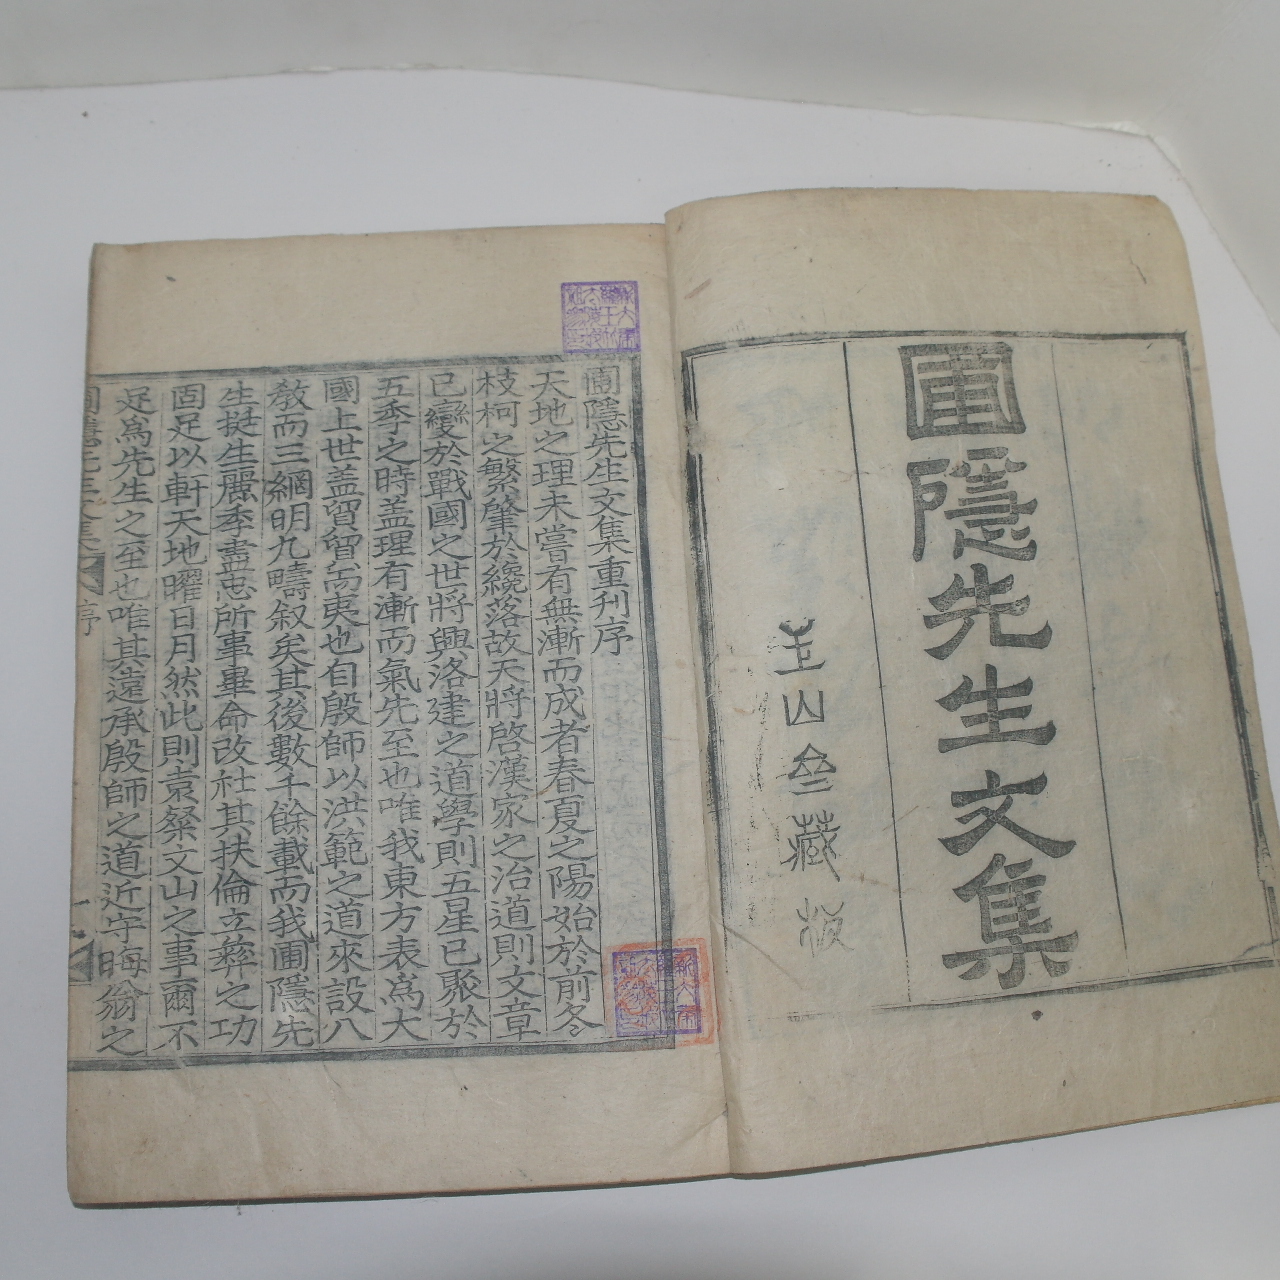 圃隱先生文集
圭山叄藏板
圃隱先生文集重刋序
天地之理未嘗有無漸而成者春夏之陽始於前冬
枝柯之繁肇於纔落故天將啓漢家之治道則文章
已變於戰國之世將興洛建之道學則五星已聚於
五季之時盖理有漸而氣先至也唯我東方表爲大
國上世盖貿貿焉夷也自殷師以洪範之道來設八
敎而三綱明九疇叙矣其後數千餘載而我圃隱先
生挺生麗季盡忠所事畢命改社其扶倫立彜之功
固足以軒天地曜日月然此則袁粲文山之事爾不
足爲先生之至也唯其遠承殷師之道近宇晦翁之
圃隱先生文集
序
一